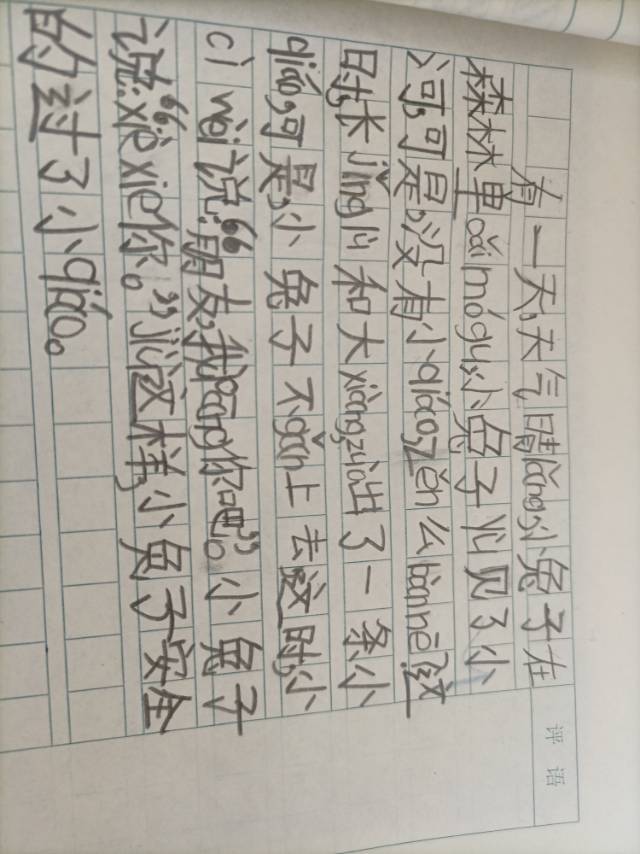 有一天,天气晴lǎng,小兔子在
森林里cǎi mógu,小兔子yù见了小
河,可是,没有小qiáo,zěn么bànnē?这
时,长jǐng lù和大xiàng,zùo出了一条小
qiáo,可是,小兔子不gǎn上去这时,小
cì wèi说:“朋友,我bāng你吧。”小兔子
说:“xiè xie你。”jiù这样,小兔子安全
的过了小qiáo。
评语